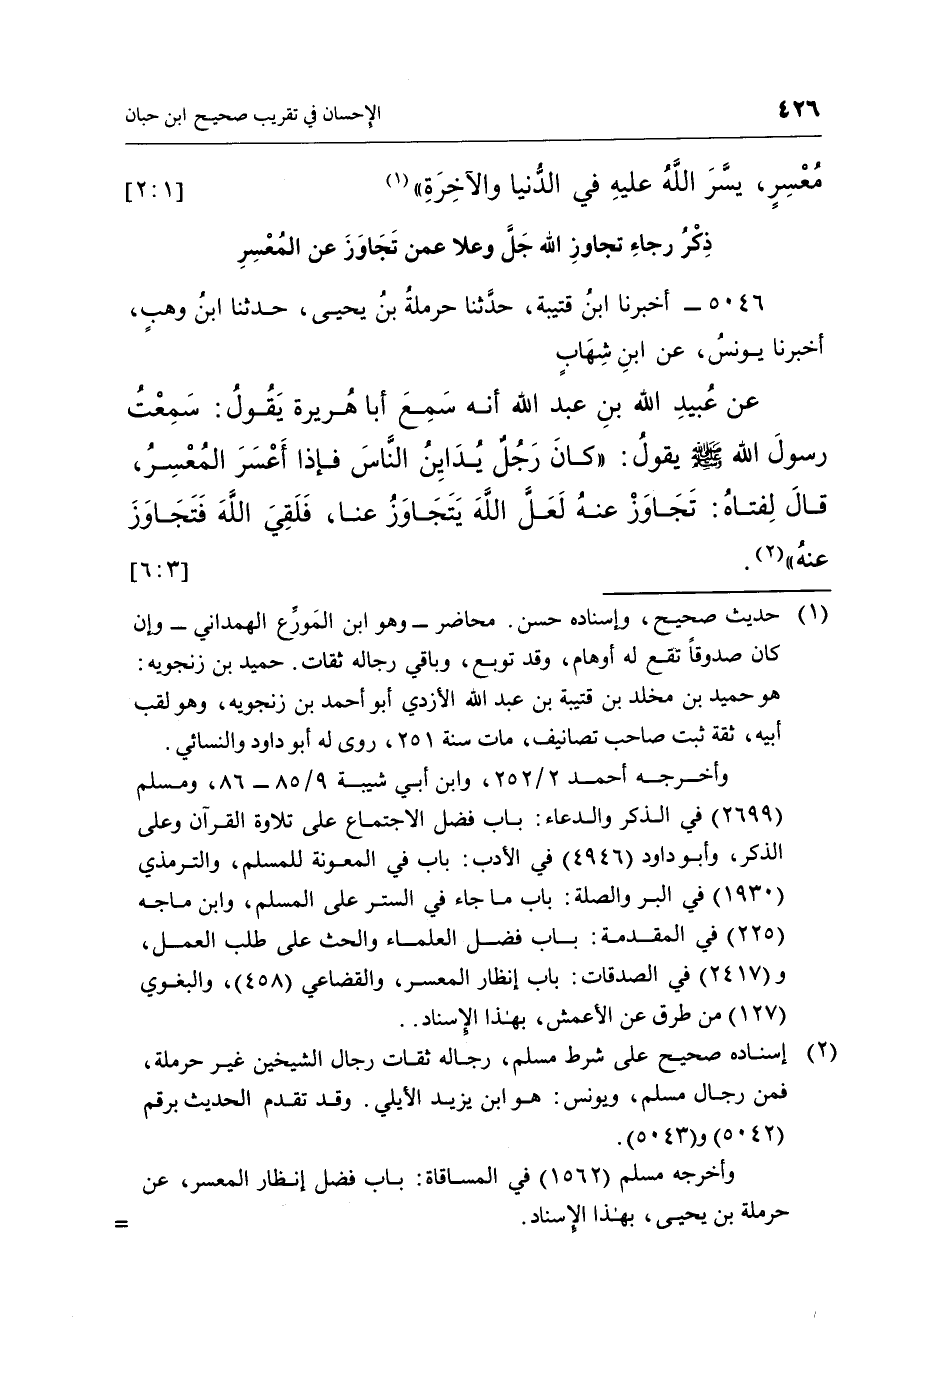 ٤٢٦
الإحسان في تقريب صحيح ابن حبان
مُعْسِرٍ، يسَّرَ اللَّهُ عليهِ في الدُّنيا والآخِرَةِ»(١) [٢:١]
ذِكْرُ رجاءِ تجاوزِ الله جَلَّ وعلا عمن تَجَاوَزَ عن المُعْسِرِ
٥٠٤٦ ـ أخبرنا ابنُ قتيبة، حدَّثنا حرملةُ بنُ يحيى، حدثنا ابنُ وهبٍ،
أخبرنا يونسُ، عن ابنِ شِهَابٍ
عن عُبيدِ الله بنِ عبد الله أنه سَمِعَ أبا هُريرة يَقُولُ: سَمِعْتُ
رسولَ الله ﷺ يقولُ: «كانَ رَجُلٌ يُدَاينُ النَّاسَ فإذا أَعْسَرَ المُعْسِرُ،
قالَ لِفتاهُ: تَجَاوَزْ عنهُ لَعَلَّ اللَّهَ يَتَجَاوَزُ عنا، فَلَقِيَ اللَّهَ فَتَجَاوَزَ
عنهُ»(٢). [٦:٣]
(١) حديث صحيح، وإسناده حسن. محاضر ـ وهو ابن المَورِّع الهمداني ـ وإن
كان صدوقاً تقع له أوهام، وقد توبع، وباقي رجاله ثقات. حميد بن زنجويه:
هو حميد بن مخلد بن قتيبة بن عبد الله الأزدي أبو أحمد بن زنجويه، وهو لقب
أبيه، ثقة ثبت صاحب تصانيف، مات سنة ٢٥١، روى له أبو داود والنسائي.
وأخرجه أحمد ٢٥٢/٢، وابن أبي شيبة ٨٥/٩ ـ ٨٦، ومسلم
(٢٦٩٩) في الذكر والدعاء: باب فضل الاجتماع على تلاوة القرآن وعلى
الذكر، وأبو داود (٤٩٤٦) في الأدب: باب في المعونة للمسلم، والترمذي
(١٩٣٠) في البر والصلة: باب ما جاء في الستر على المسلم، وابن ماجه
(٢٢٥) في المقدمة: باب فضل العلماء والحث على طلب العمل،
و(٢٤١٧) في الصدقات: باب إنظار المعسر، والقضاعي (٤٥٨)، والبغوي
(١٢٧) من طرق عن الأعمش، بهذا الإسناد..
(٢) إسناده صحيح على شرط مسلم، رجاله ثقات رجال الشيخين غير حرملة،
فمن رجال مسلم، ويونس: هو ابن يزيد الأيلي. وقد تقدم الحديث برقم
(٥٠٤٢) و(٥٠٤٣).
وأخرجه مسلم (١٥٦٢) في المساقاة: باب فضل إنظار المعسر، عن
حرملة بن يحيى، بهذا الإسناد. =